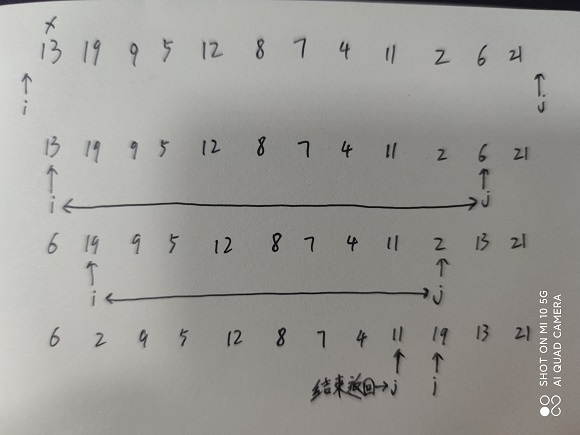 x
13 19 9 5 12 8 7 4 11 2 6 21
i j
13 19 9 5 12 8 7 4 11 2 6 21
i j
6 19 9 5 12 8 7 4 11 2 13 21
i j
6 2 9 5 12 8 7 4 11 19 13 21
结束返回→j i
SHOT ON MI 10 5G
AI QUAD CAMERA